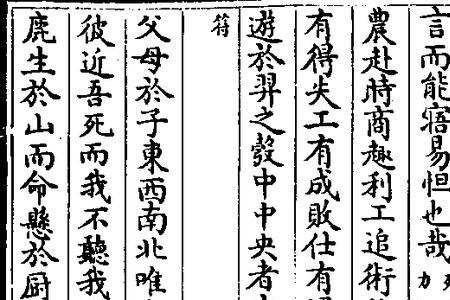 言而能寤易怛也哉
農赴時商趣利工追術
有得失工有成敗仕有
遊於羿之彀中中央者
符
父母於子東西南北唯
彼近吾死而我不聽我
鹿生於山而命懸於厨